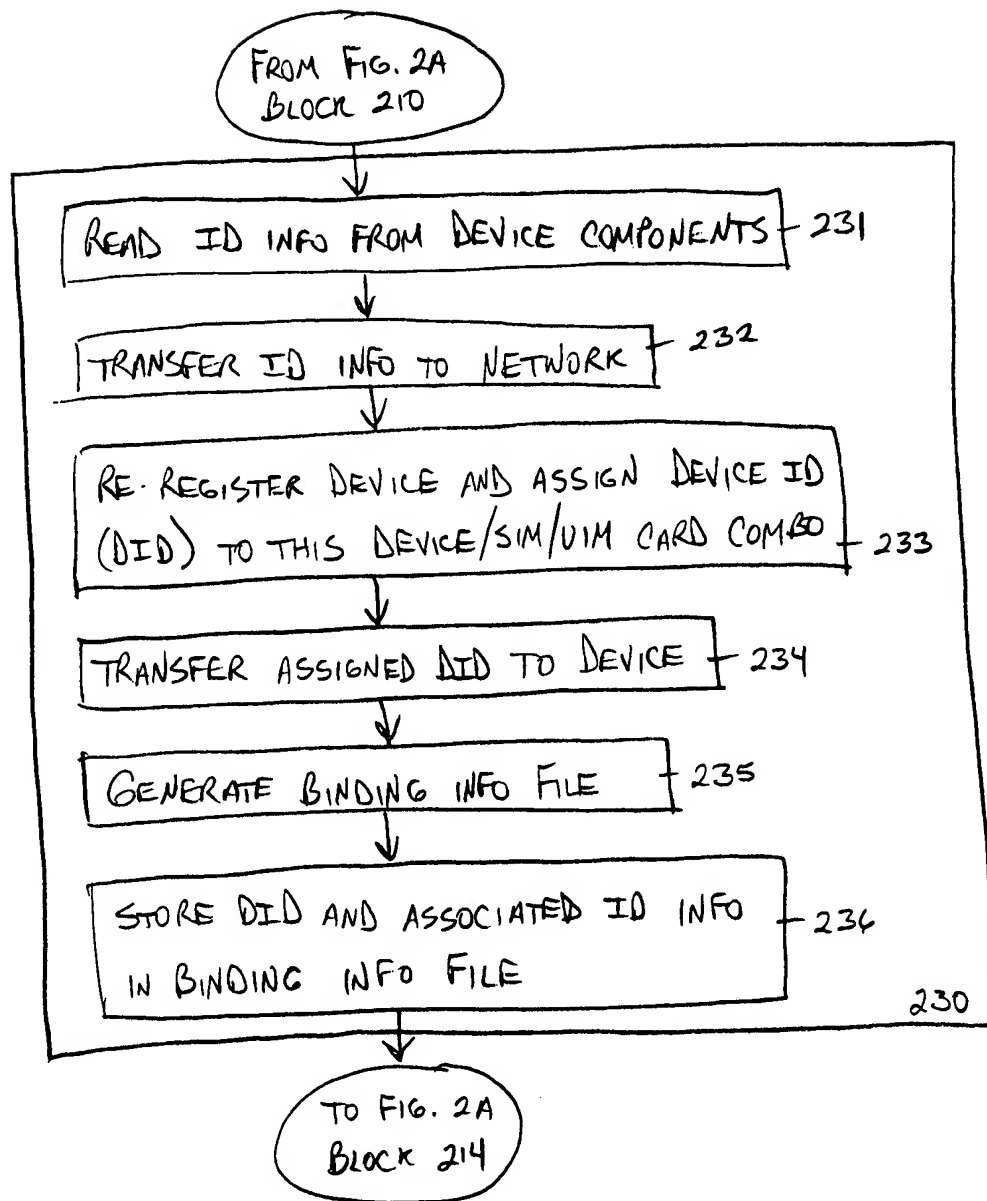 FROM FIG. 2A
BLOCK 210
READ ID INFO FROM DEVICE COMPONENTS 231
TRANSFER ID INFO TO NETWORK 232
RE-REGISTER DEVICE AND ASSIGN DEVICE ID
(DID) TO THIS DEVICE/SIM/UIM CARD COMBO 233
TRANSFER ASSIGNED DID TO DEVICE 234
GENERATE BINDING INFO FILE 235
STORE DID AND ASSOCIATED ID INFO 236
IN BINDING INFO FILE
230
TO FIG. 2A
BLOCK 214